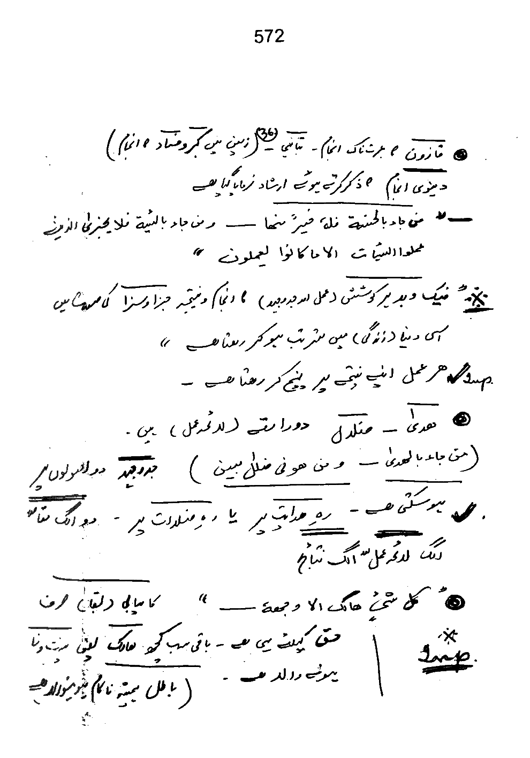 572
قارون کا عبرتناک انجام - تباہی - (36) (زمین میں کبر و فساد کا انجام)
دنیوی انجام کا ذکر کرتے ہوئے ارشاد فرمایا گیا ہے
" من جاء بالحسنۃ فلہ خیرٌ منھا — ومن جاء بالسیۃ فلا یجزی الذین
عملوا السیئات الا ما کانوا یعملون "
" نیک و بد ہر کوشش (عمل اور جدوجہد) کا انجام و نتیجہ جزا و سزا کی میں
اسی دنیا (زندگی) میں مرتب ہو کر رہتا ہے "
ہر عمل اپنے نتیجے پر پہنچ کر رہتا ہے - Imp.
ھدیٰ - ضلال دو راستے (لائحہ عمل) ہیں -
(من جاء بالھدیٰ — ومن ھو فی ضلٰل مبین) جدوجہد دو اصولوں پر
ہو سکتی ہے - رہِ ہدایت پر یا رہِ ضلالت پر - دو الگ
الگ لائحہ عمل " الگ نتائج
" کل شیءٍ ھالک الا وجھہ — " کامیابی (بقا) صرف
حق کیلئے ہی ہے - باقی سب کچھ ھالک یعنی
Imp.
ہونے والا ہے - (باطل ہمیشہ ناکام ہونیوالا ہے